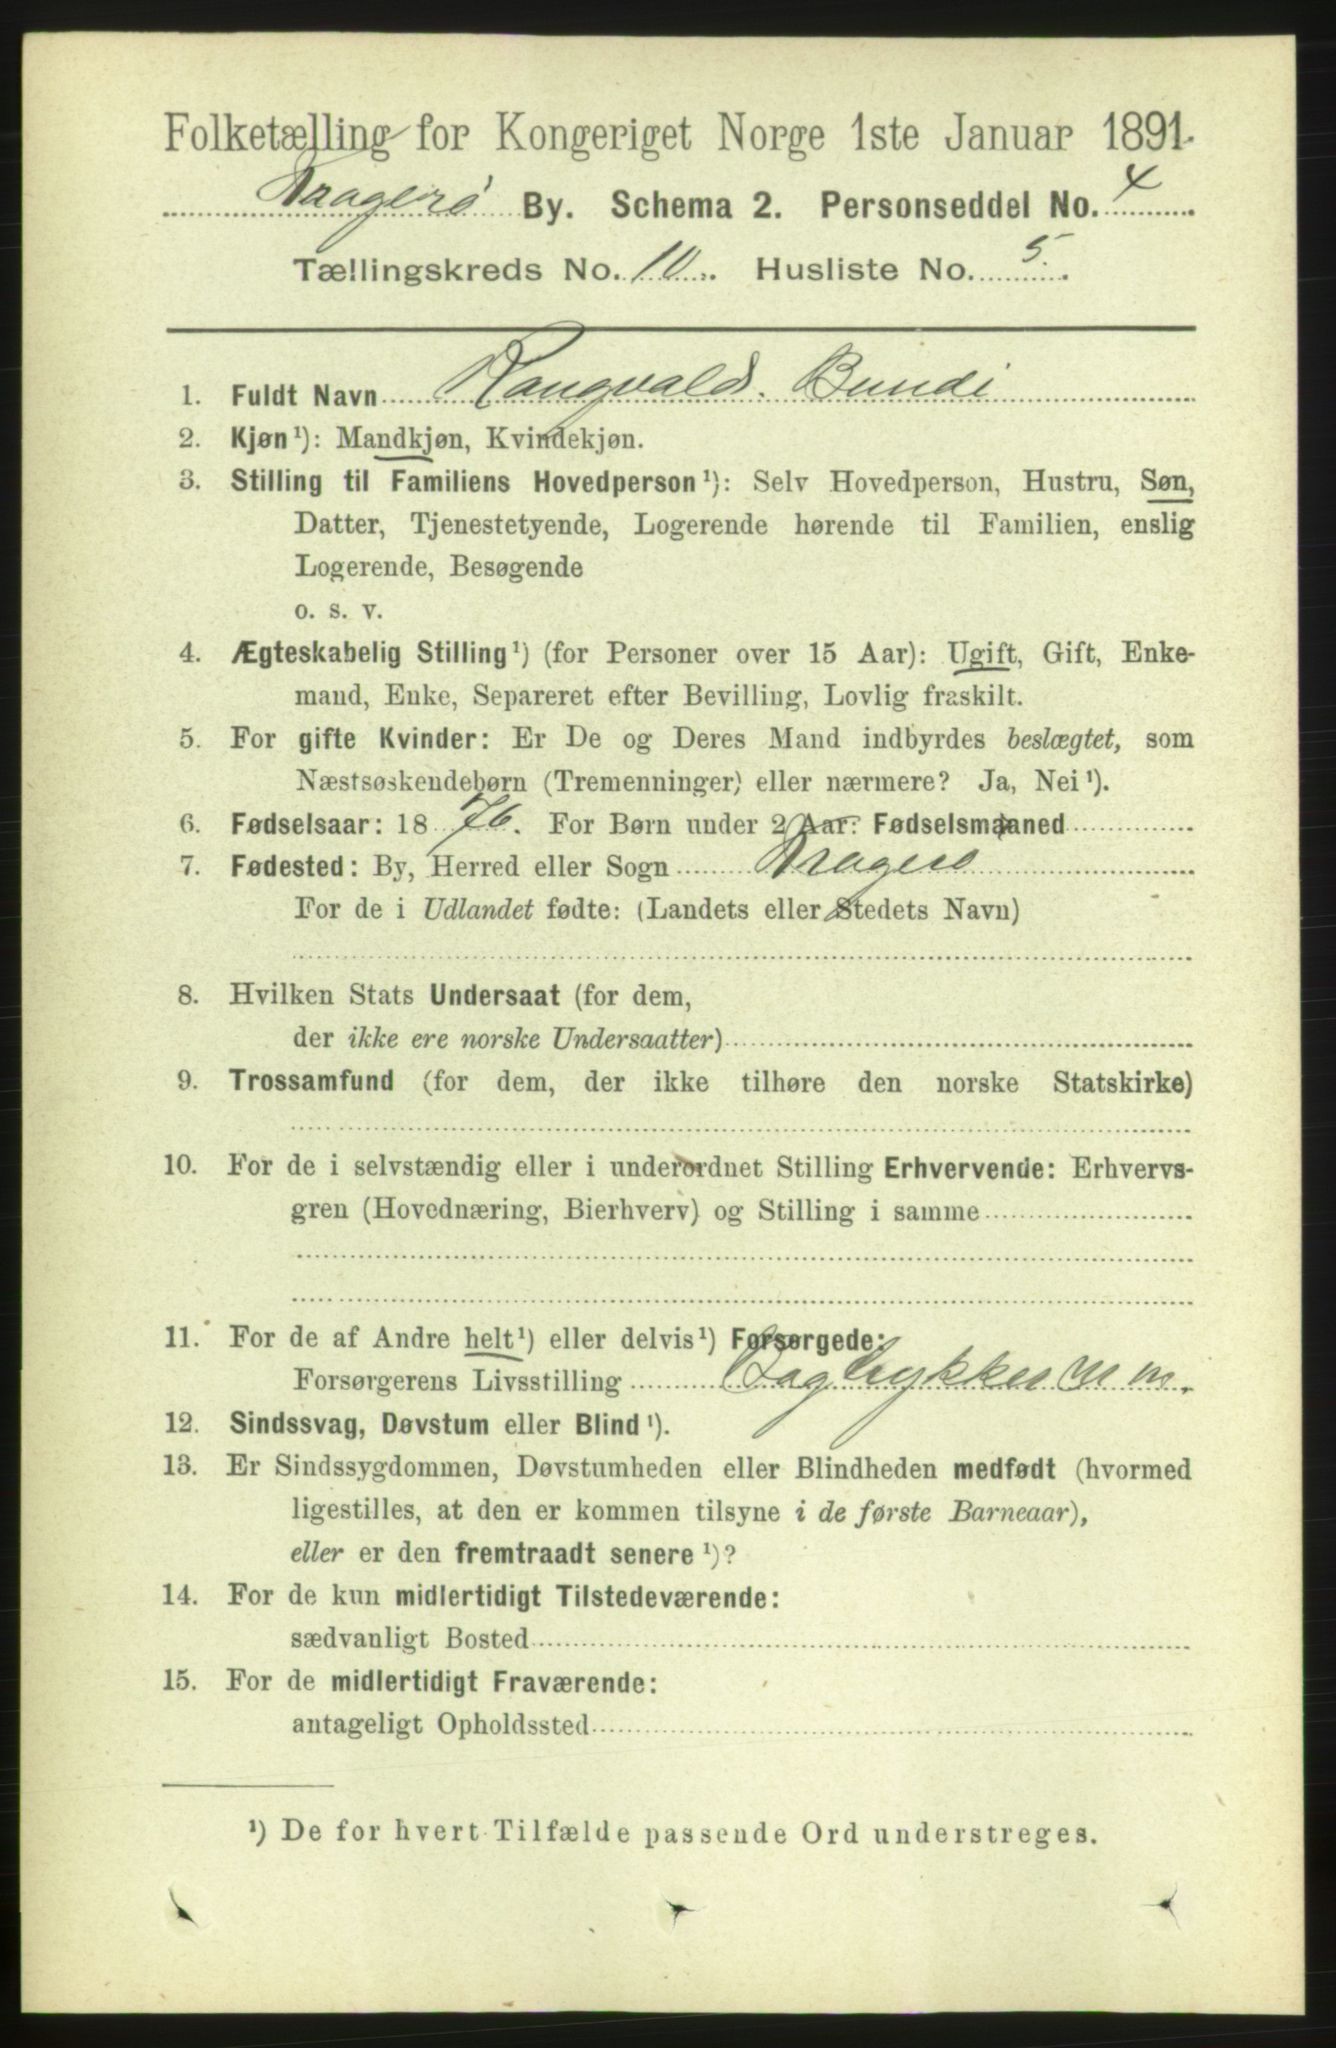 Folketælling for Kongeriget Norge 1ste Januar 1891.
Kragerø By. Schema 2. Personseddel No. 4
Tællingskreds No. 10. Husliste No. 5.
1. Fuldt Navn Rangvald. Bundi
2. Kjøn¹): Mandkjøn, Kvindekjøn.
3. Stilling til Familiens Hovedperson¹): Selv Hovedperson, Hustru, Søn,
Datter, Tjenestetyende, Logerende hørende til Familien, enslig
Logerende, Besøgende
o. s. v.
4. Ægteskabelig Stilling¹) (for Personer over 15 Aar): Ugift, Gift, Enke-
mand, Enke, Separeret efter Bevilling, Lovlig fraskilt.
5. For gifte Kvinder: Er De og Deres Mand indbyrdes beslægtet, som
Næstsøskendebørn (Tremenninger) eller nærmere? Ja, Nei¹).
6. Fødselsaar: 1876. For Børn under 2 Aar: Fødselsmaaned
7. Fødested: By, Herred eller Sogn Kragerø
For de i Udlandet fødte: (Landets eller Stedets Navn)
8. Hvilken Stats Undersaat (for dem,
der ikke ere norske Undersaatter)
9. Trossamfund (for dem, der ikke tilhøre den norske Statskirke)
10. For de i selvstændig eller i underordnet Stilling Erhvervende: Erhvervs-
gren (Hovednæring, Bierhverv) og Stilling i samme
11. For de af Andre helt¹) eller delvis¹) Forsørgede:
Forsørgerens Livsstilling Bogtrykker m m.
12. Sindssvag, Døvstum eller Blind¹).
13. Er Sindssygdommen, Døvstumheden eller Blindheden medfødt (hvormed
ligestilles, at den er kommen tilsyne i de første Barneaar),
eller er den fremtraadt senere¹)?
14. For de kun midlertidigt Tilstedeværende:
sædvanligt Bosted
15. For de midlertidigt Fraværende:
antageligt Opholdssted
¹) De for hvert Tilfælde passende Ord understreges.